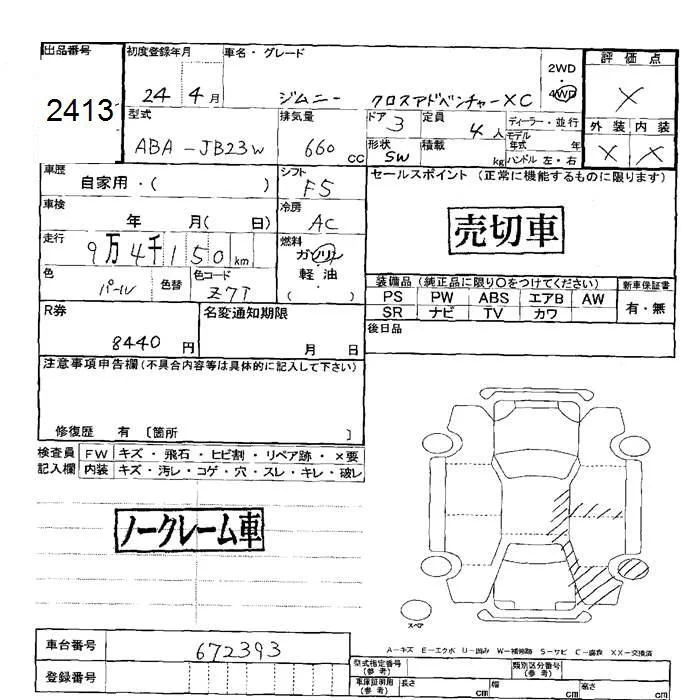 出品番号
2413
初度登録年月
24 4月
車名・グレード
ジムニー クロスアドベンチャーXC
2WD
・
4WD
評価点
X
型式
ABA-JB23W
排気量
660 CC
ドア 3
定員 4人
ディーラー・並行
モデル年式 年
形状 SW
積載 kg
ハンドル 左・右
外装 内装
X X
車歴
自家用・( )
シフト
F5
セールスポイント(正常に機能するものに限ります)
売切車
車検
年 月( 日)
冷房
AC
走行
9万4千150km
燃料
ガソリン
・
軽油
( )
色
パール
色替
色コード
Z7T
装備品(純正品に限り○をつけてください) 新車保証書
PS PW ABS エアB AW
SR ナビ TV カワ
有・無
後日品
R券
8440円
名変通知期限
月 日
注意事項申告欄(不具合内容等は具体的に記入して下さい)
修復歴 有 〔箇所 〕
検査員記入欄
FW キズ・飛石・ヒビ割・リペア跡・×要
内装 キズ・汚レ・コゲ・穴・スレ・キレ・破レ
ノークレーム車
スペア
A-キズ E-エクボ U-凹み W-補修跡 S-サビ C-腐食 XX-交換済
車台番号
672393
登録番号
型式指定番号(参考)
類別区分番号(参考)
車庫証明用(参考) 長さ cm 幅 cm 高さ cm